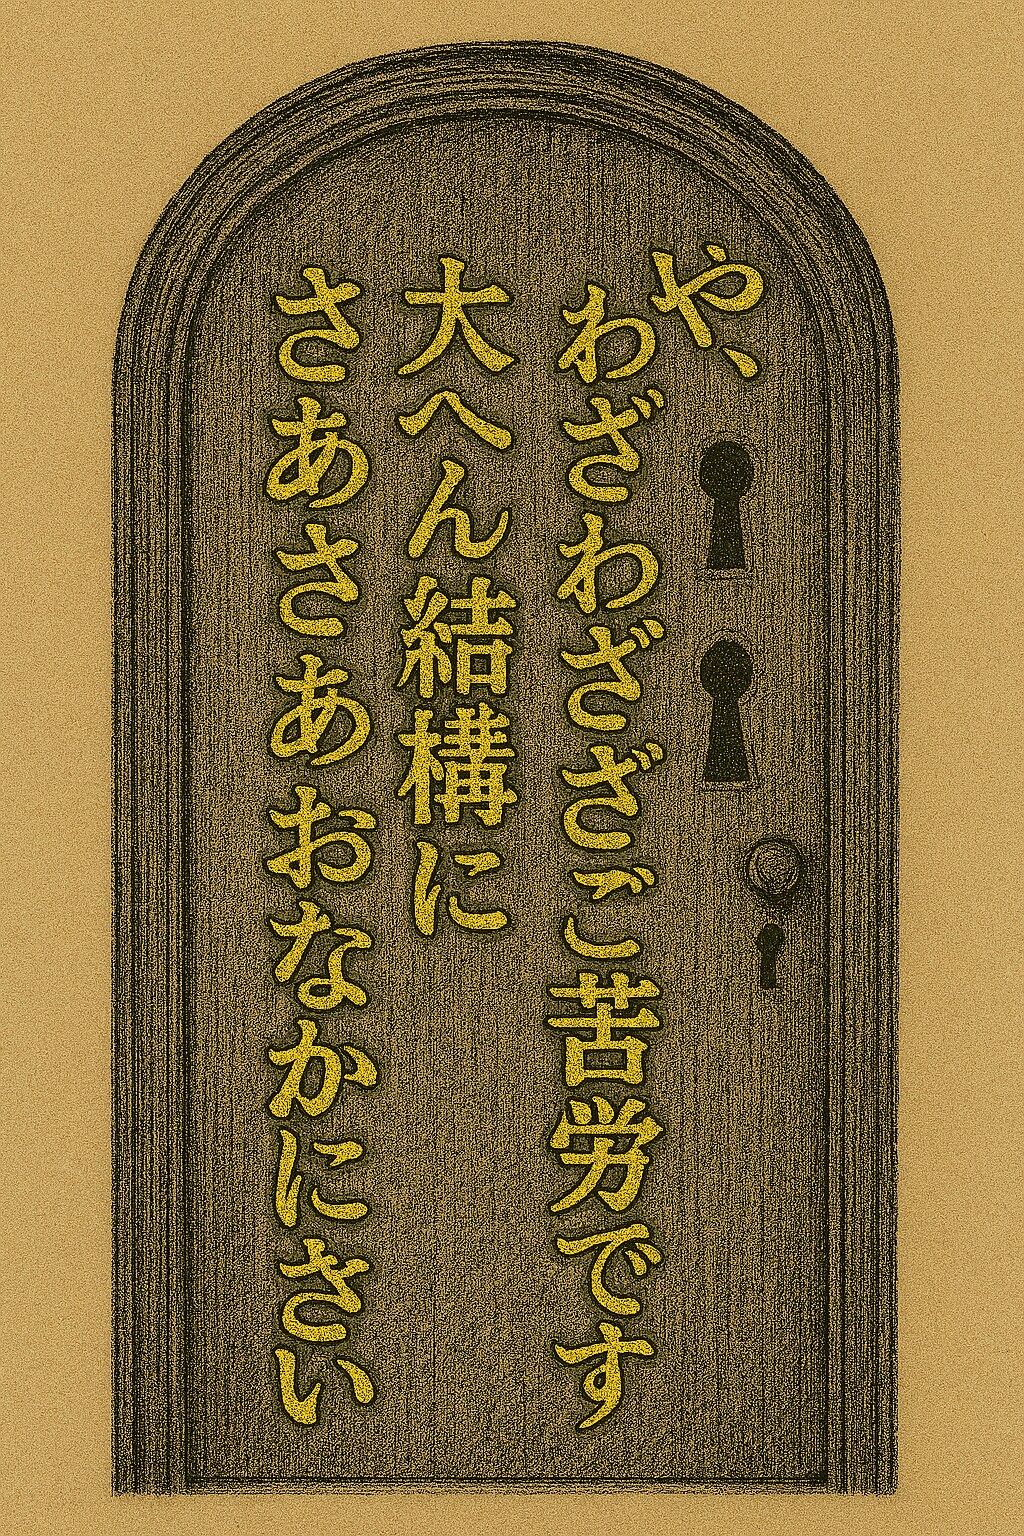 や、
わざわざざご苦労です
大へん結構に
さあさあおなかにさい